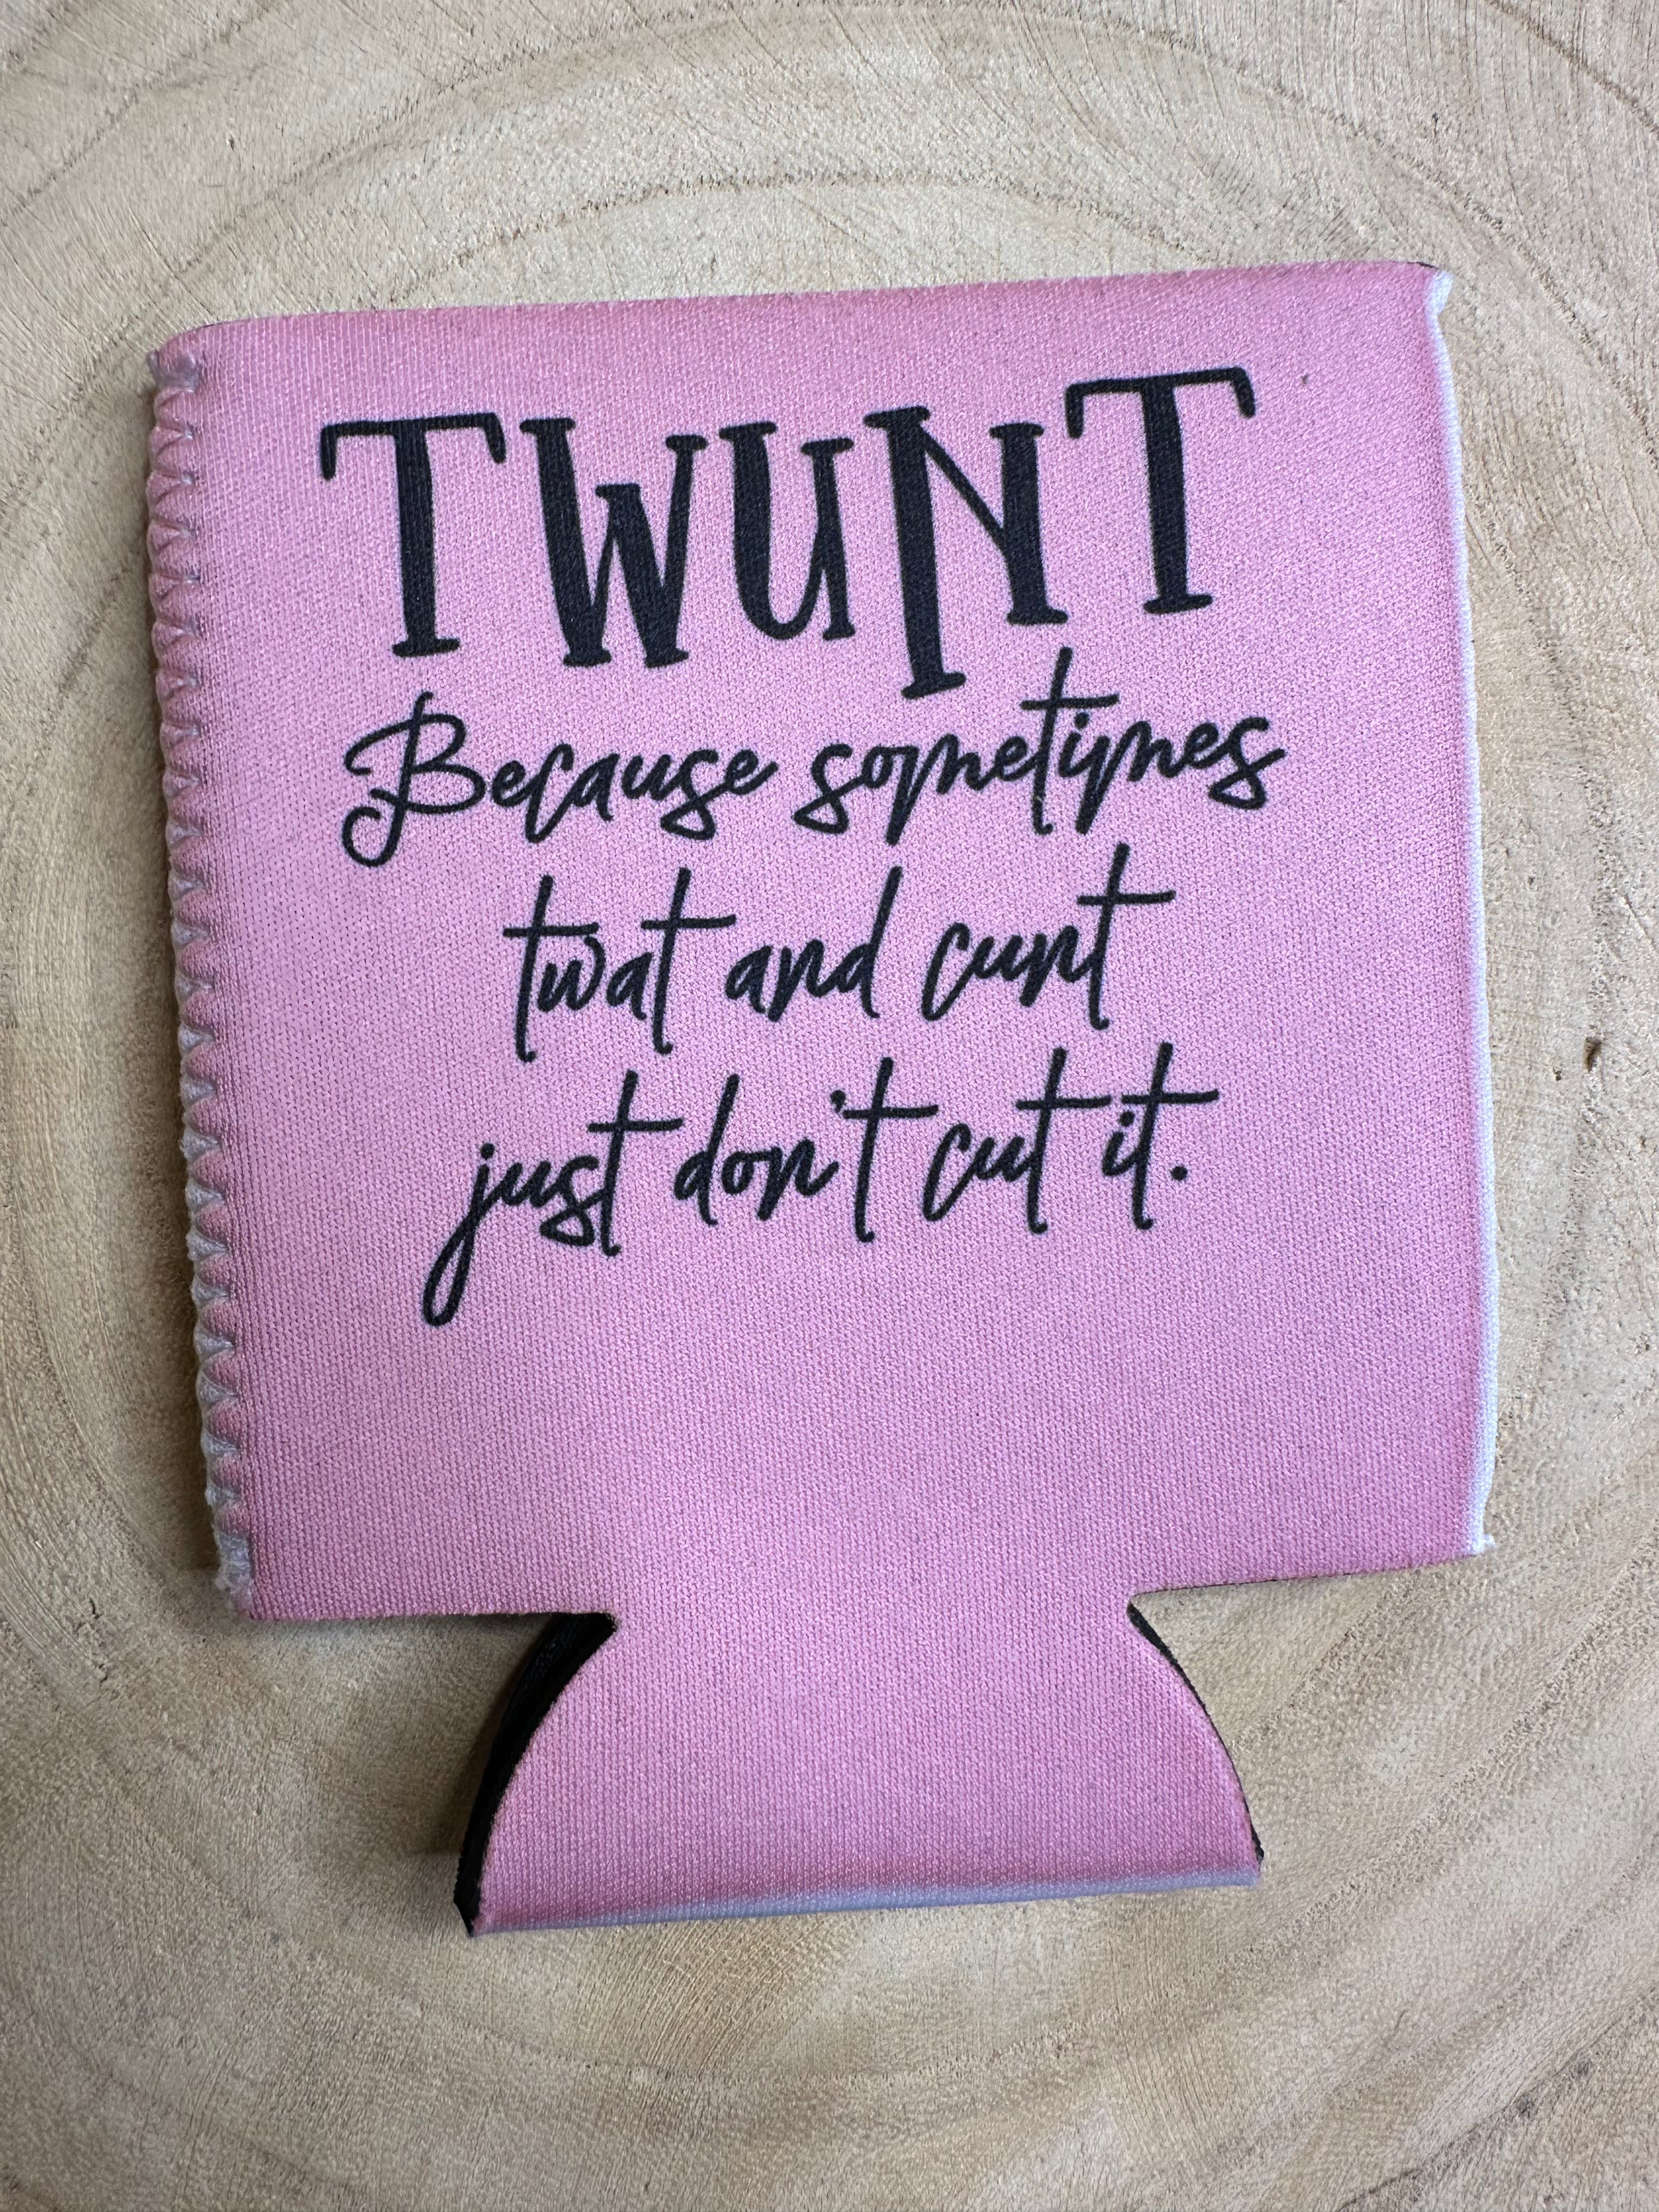 TWUNT
Because sometimes
twat and cunt
just don't cut it.